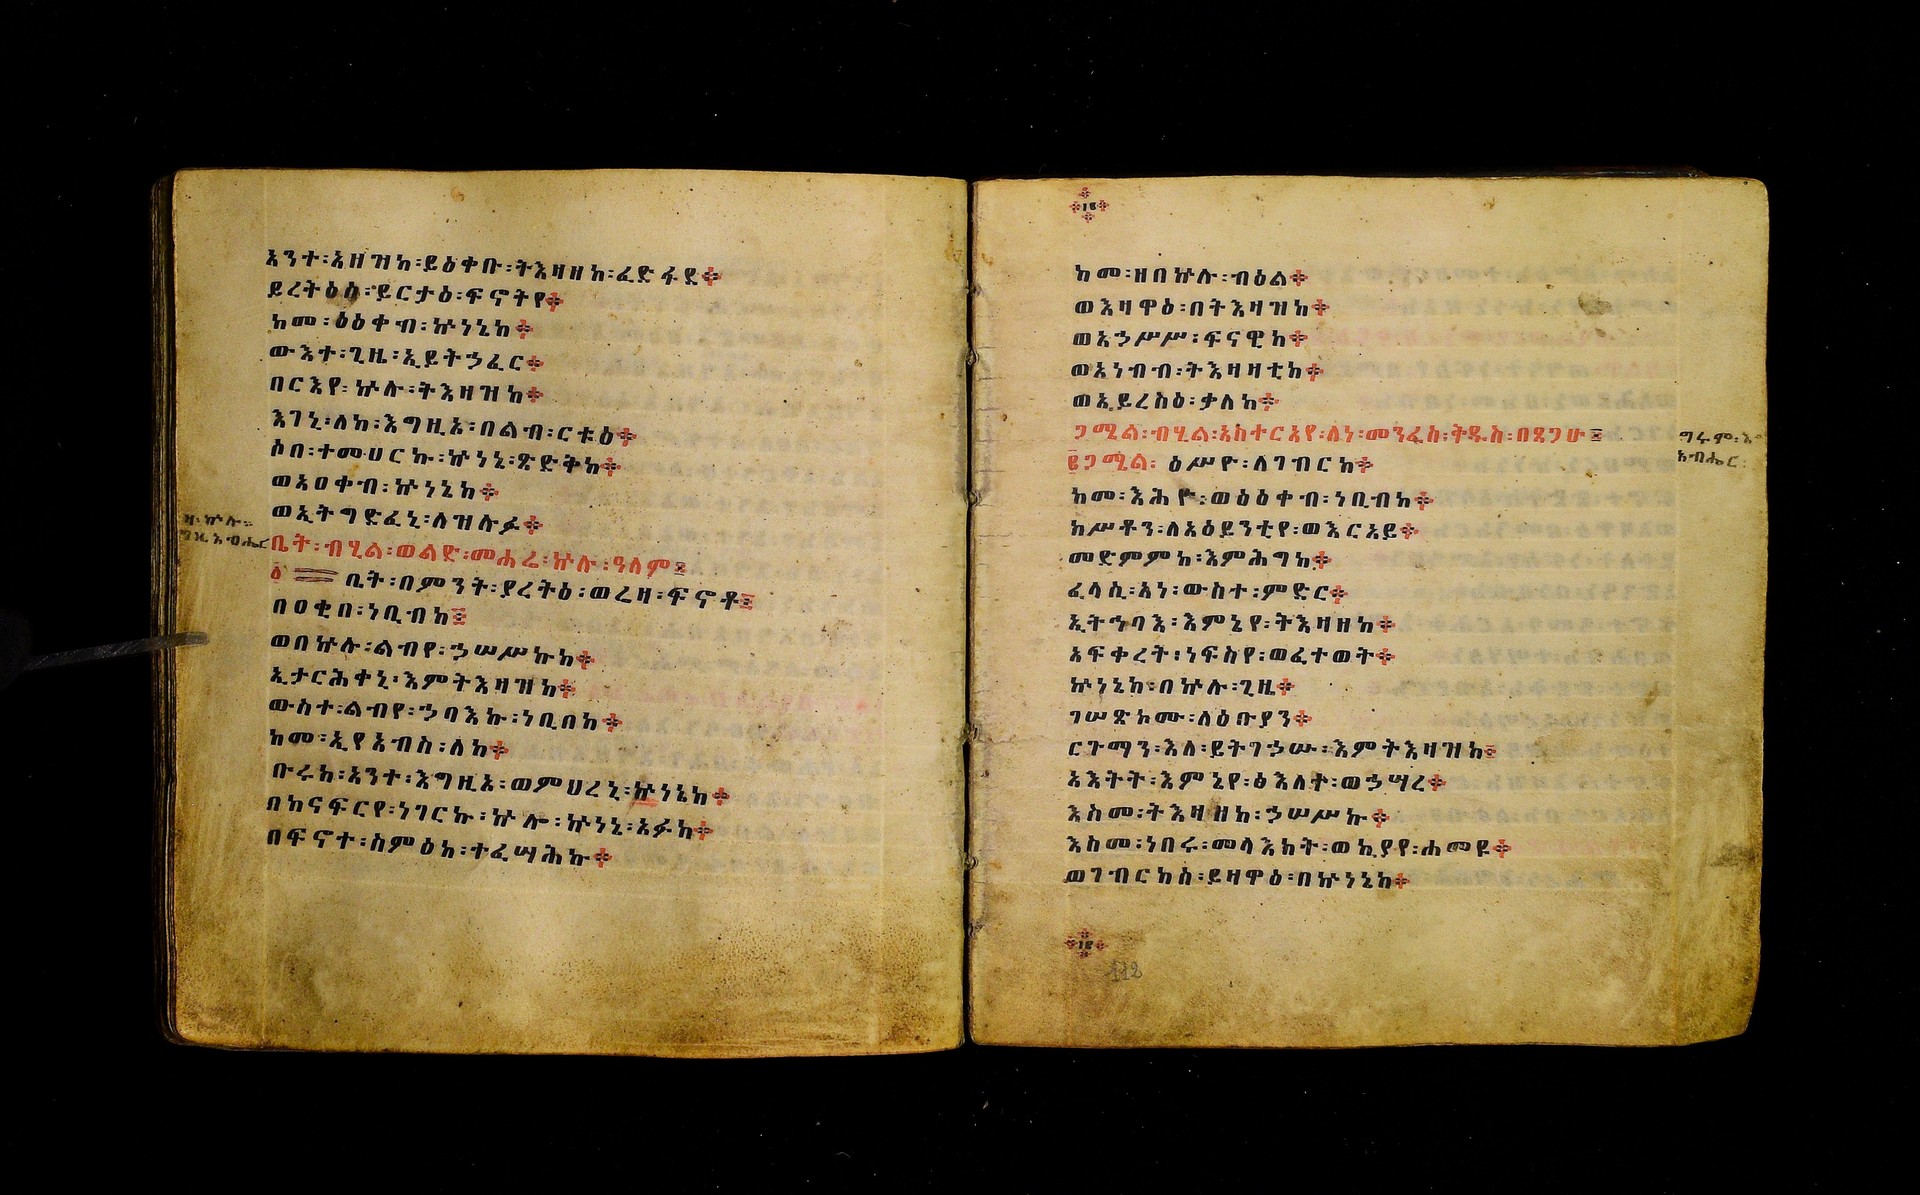 አንተ፡አዘዝከ፡ይዕቀቡ፡ትእዛዘከ፡ፈድፋደ፨
ይረትዕሰ፡ይርታዕ፡ፍኖትየ፨
ከመ፡ዕዕቀብ፡ኵነኔከ፨
ውእተ፡ጊዜ፡ኢይትኃፈር፨
በርእየ፡ኵሉ፡ትእዛዝከ፨
እገኒ፡ለከ፡እግዚኦ፡በልብ፡ርቱዕ፨
ሶበ፡ተመሀርኩ፡ኵነኔ፡ጽድቅከ፨
ወአዐቀብ፡ኵነኔከ፨
ወኢትግድፈኒ፡ለዝሉፉ፨
ቤት፡ብሂል፡ወልድ፡መሐሬ፡ኵሉ፡ዓለም፨
ቤት፡በምንት፡ያረትዕ፡ወሬዛ፡ፍኖቶ፨
በዐቂበ፡ነቢብከ፨
ወበኵሉ፡ልብየ፡ኃሠሥኩከ፨
ኢታርሕቀኒ፡እምትእዛዝከ፨
ውስተ፡ልብየ፡ኃባእኩ፡ነቢበከ፨
ከመ፡ኢየአብስ፡ለከ፨
ቡሩክ፡አንተ፡እግዚኦ፡ወምህረኒ፡ኵነኔከ፨
በከናፍርየ፡ነገርኩ፡ኵሎ፡ኵነኔ፡አፉከ፨
በፍኖተ፡ስምዕከ፡ተፈሣሕኩ፨
ከመ፡ዘበኵሉ፡ብዕል፨
ወእዛዋዕ፡በትእዛዝከ፨
ወአኃሥሥ፡ፍናዊከ፨
ወአነብብ፡ትእዛዛቲከ፨
ወኢይረስዕ፡ቃለከ፨
ጋሜል፡ብሂል፡አስተርአየ፡ለነ፡መንፈስ፡ቅዱስ፡በጸጋሁ፨
፫ጋሜል፡ዕሥዮ፡ለገብርከ፨
ከመ፡እሕዮ፡ወዕዕቀብ፡ነቢብከ፨
ክሥቶን፡ለአዕይንቲየ፡ወእርአይ፨
መድምምከ፡እምሕግከ፨
ፈላሲ፡አነ፡ውስተ፡ምድር፨
ኢትኅባእ፡እምኔየ፡ትእዛዘከ፨
አፍቀረት፡ነፍስየ፡ወፈተወት፨
ኵነኔከ፡በኵሉ፡ጊዜ፨
ገሠጽከሙ፡ለዕቡያን፨
ርጉማን፡እለ፡ይትገኃሡ፡እምትእዛዝከ፨
አእትት፡እምኔየ፡ፅእለት፡ወኃሣረ፨
እስመ፡ትእዛዘከ፡ኃሠሥኩ፨
እስመ፡ነበሩ፡መላእክት፡ወኪያየ፡ሐመዩ፨
ወገብርከሰ፡ይዛዋዕ፡በኵነኔከ፨
112